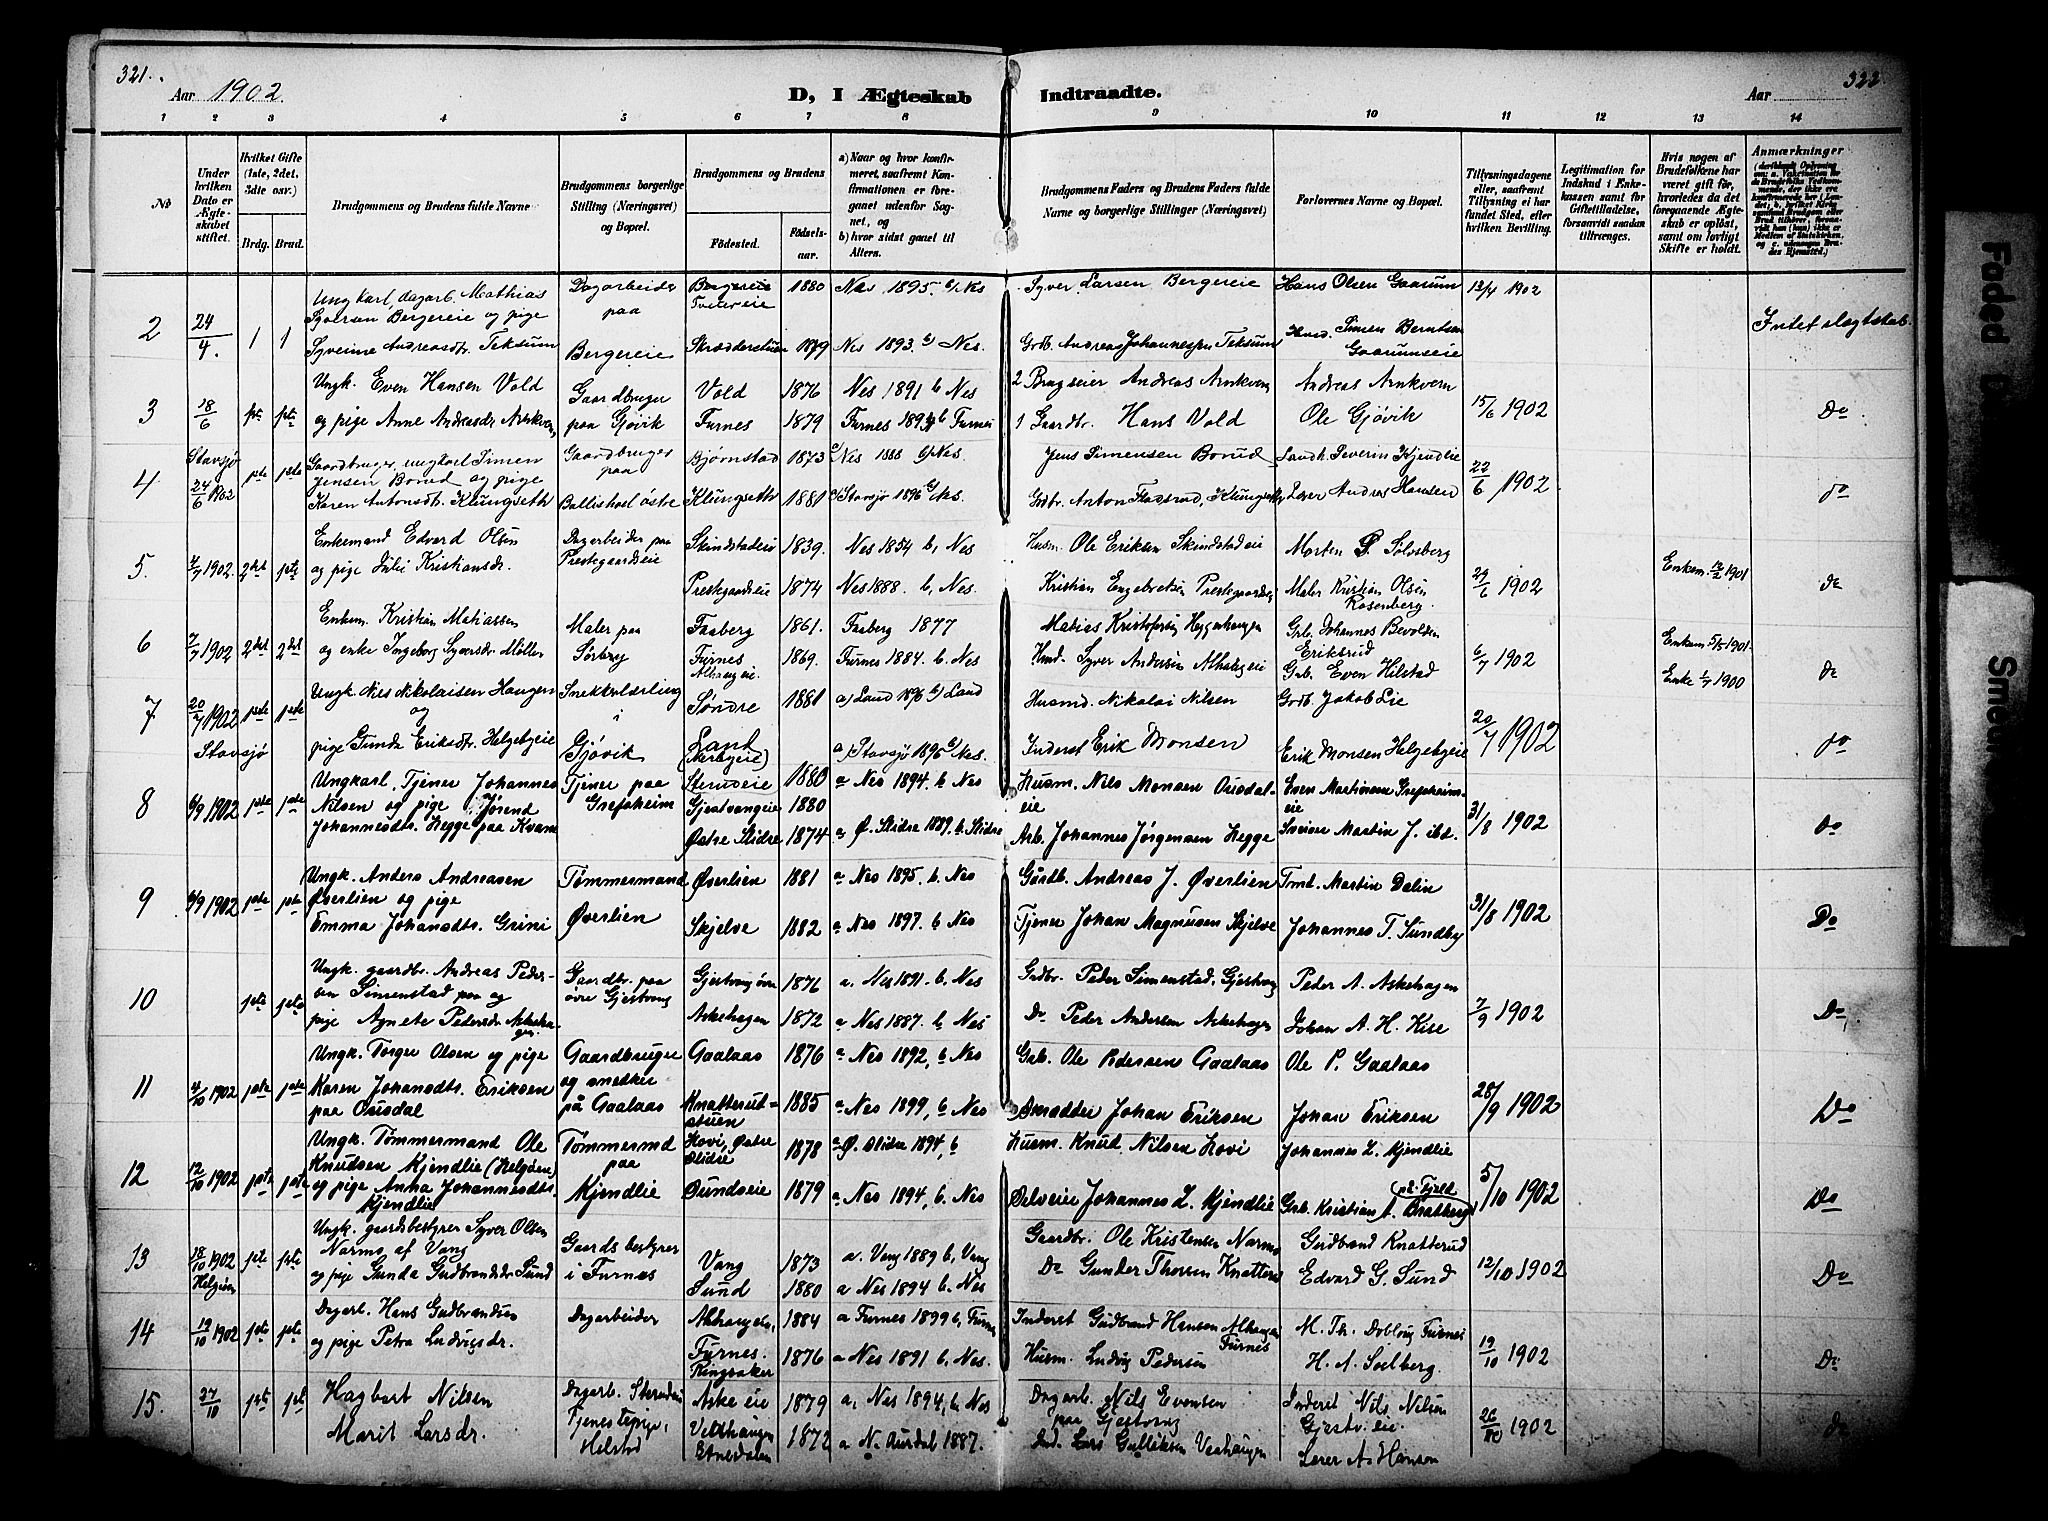 321.
Aar 1902.
D, I Ægteskab Indtraadte.
Aar
322
1 2 3 4 5 6 7 8 9 10 11 12 13 14
No
Under hvilken Dato er Ægteskabet stiftet.
Hvilket Gifte (1ste, 2det, 3die osv.)
Brdg. Brud.
Brudgommens og Brudens fulde Navne
Brudgommens borgerlige Stilling (Næringsvei) og Bopæl.
Brudgommens og Brudens
Fødested.
Fødselsaar.
a) Naar og hvor konfirmeret, saafremt Konfirmationen er foregaaet udenfor Sognet, og
b) hvor sidst gaaet til Alters.
Brudgommens Faders og Brudens Faders fulde Navne og borgerlige Stillinger (Næringsvei)
Forlovernes Navne og Bopæl.
Tillysningsdagene eller, saafremt Tillysning ei har fundet Sted, efter hvilken Bevilling.
Legitimation for Indskud i Enkekassen samt for Giftetilladelse, forsaavidt saadan tiltrænges.
Hvis nogen af Brudefolkene har været gift før, hvorledes da det foregaaende Ægteskab er opløst, samt om lovligt Skifte er holdt.
Anmærkninger
2 24/4. 1 1
Ungkarl, dagarb. Mathias
Syversen Bergereie og pige
Syverine Andreasdtr. Teksum
Dagarbeider
paa
Bergereie
Bergereie 1880 Nes 1895. b/ Nes
1879 Nes 1893. b) Nes.
Syver Larsen Bergereie
Grdb. Andreas Johannessen Teksum
Hans Olsen Gaarum
Simen Berntsen
Gaarumseie
13/4 1902
Intet slægtskab.
3 18/6 pte pte
Ungk. Even Hansen Vold
og pige Anne Andreasdr Arnkvern
Gaardbruger
paa Gjøvik
Vold 1876 Nes 1891 b Nes
Furnes 1879 Furnes 1894 b Furnes
2 Brugseier Andreas Arnkvern
1 Gaardbr. Hans Vold
Andreas Arnkvern
Ole Gjøvik
15/6 1902
Do
4 Stavsjø 24/6 1902 pste pste
Gaardbruger, ungkarl Simen
Jensen Borud og pige
Karen Antonsdtr. Klungseth
Gaardbruger
paa
Ballishoel østre
Bjørnstad 1873 a/ Nes 1888 b) Nes.
Klungseth 1881 a/ Stavsjø 1896 b/ Nes.
Jens Simensen Borud
Grdbr. Anton Klungseth
Landh. Severin Kjendlie
Lærer Andreas Hansen
22/6 1902
do
5. 7/7 1902. 2det pste
Enkemand Edvard Olsen
og pige Julie Kristiansdr.
Dagarbeider paa
Prestegaardseie
Skindstadeie 1839. Nes 1854 b, Nes
Prestgaardseie 1874 Nes 1888. b, Nes.
Husm. Ole Eriksen Skindstadeie
Kristian Engebretsen Prestegaardseie
Morten P. Solsberg
Maler Kristian Olsen
Rosenberg.
29/6 1902
Enkem. 1901
do
6 7/7 1902 2det 2det
Enkem. Kristian Matiassen
og enke Ingeborg Syversdr. Møller
Maler paa
Sørberg
Faaberg 1861. Faaberg 1877
Furnes 1869. Furnes 1884. b. Nes
Matias Kristofersen Heggerhaugen
Husmd. Syver Andersen Alhaugeie
Grb. Johannes Bevolden
Eriksrud
Grb. Even Hilstad
6/7 1902
Enkem 5/5 1901.
Enke 1/7 1900
do
7 20/7 1902 Stavsjø 1ste 1ste
Ungk. Nils Nikolaisen Haugen
og
pige Gunda Eriksdtr. Helgebyeie
Snekkerlærling
i
Gjøvik
Søndre 1881 a) Land 1896 b) Land
Land a/ Stavsjø 1896 b/ Nes.
Husmd. Nikolai Nilsen
Inderst Erik Monsen
Grdb. Jakob Lie
Erik Monsen Helgebyeie
20/7 1902
do
8 6/9 1902 1ste 1ste
Ungkarl, Tjener Johannes
Nilsen og pige Jørend
Johannesdtr. Hegge paa Kvam
Tjener paa
Grefsheim
Sterudeie 1880 a Nes 1894. b Nes
Gjestvangeie 1880
Østre Slidre 1874 a. Ø. Slidre 1889. b. Slidre
Husm. Nils Monsen Ousdaleie
Arb. Johannes Jørgensen Hegge
Even Martinsen Grefsheimseie
Sveiser Martin J. ibd.
31/8 1902
do
9 6/9 1902 1ste 1ste
Ungk. Anders Andreasen
Øverlien og pige
Emma Johansdtr. Grini
Tømmermand
Øverlien
Øverlien 1881 a. Nes 1895. b. Nes
Skjelve 1882 a. Nes 1897. b Nes
Gårdb. Andreas J. Øverlien
Tjener Johan Magnusen Skjelve
Tmd. Martin Dalin
Johannes T. Sundby
31/8 1902
Do
10 1ste 1ste
Ungk. gaardbr. Andreas Pedersen
Simenstad paa og
pige Agnete Pedersdr. Askehagen
Gaardbr. paa
øvre Gjestvang
Gjestvang øvre 1876 a. Nes 1891. b Nes
Askehagen 1872 a Nes 1887. b, Nes
Grdbr. Peder Simenstad, Gjestvang
Do Peder Andersen Askehagen
Peder A. Askehagen
Johan A. H. Kise
7/9 1902
Do
11 4/10 1902 1ste 1ste
Ungk. Torger Olsen og pige
Karen Johansdtr. Eriksen
paa Ousdal
Gaardbruger
og snedker
på Gaalaas
Gaalaas 1876 a. Nes 1892, b Nes
Knatterudstuen 1885 a. Nes 1899, b Nes
Grb. Ole Pedersen Gaalaas
Skrædder Johan Eriksen
Ole P. Gaalaas
Johan Eriksen
28/9 1902
Do
12 12/10 1902 1ste 1ste
Ungk. Tømmermand Ole
Knudsen Kjendlie (Helgøen)
og pige Anna Johannesdtr.
Kjendlie
Tømmermd
paa
Kjendlie
Hovi, Østre Slidre 1878 a Ø. Slidre 1894, b
Sundseie 1879 a. Nes 1894, b. Nes
Husm. Knud Nilsen Hovi
Selveier Johannes L. Kjendlie
Johannes L. Kjendlie
Grb. Kristian A. Bratberg
5/10 1902
Do
13 18/10 1902 Helgøen pste pste
Ungk. gaardsbestyrer Syver Olsen
Narmo af Vang
og pige Gunda Gudbrandsdr Sund
Gaardsbestyrer
i Furnes
Vang 1873 a. Vang 1889 b, Vang
Sund 1880 a Nes 1894. b. Nes
Gaardbr. Ole Kristensen Narmo
Do Gunder Thorsen Knatterud
Gudbrand Knatterud
Edvard G. Sund
12/10 1902
Do
14 19/10 1902 pste pste
Dagarb. Hans Gudbrandsen
og pige Petra Ludvigsdr.
Dagarbeider
Furnes. 1884 a Furnes 1899 b, Furnes
Ringsaker 1876 a. Nes 1891 b, Nes.
Inderst Gudbrand Hansen Alhaugen
Furnes
Husm. Ludvig Pedersen
M. Th. Dobloug Furnes
H. A. Soelberg.
19/10 1902
Do
15. 27/10 pste pste
Hagbart Nilsen
Marit Larsdr.
Dagarb. Sterudeie
Tjenestepige,
Helstad
Askeeie 1879 a, Nes 1894, b, Nes
Velthaugen
Etnedalen 1872 a N. Aurdal 1887.
Dagarb. Nils Evensen
paa Gjestvang
Lars Gulliksen
Inderst Nils Nilsen
Gjestv. eie.
Lærer A. Hanson
26/10 1902
do
Faded